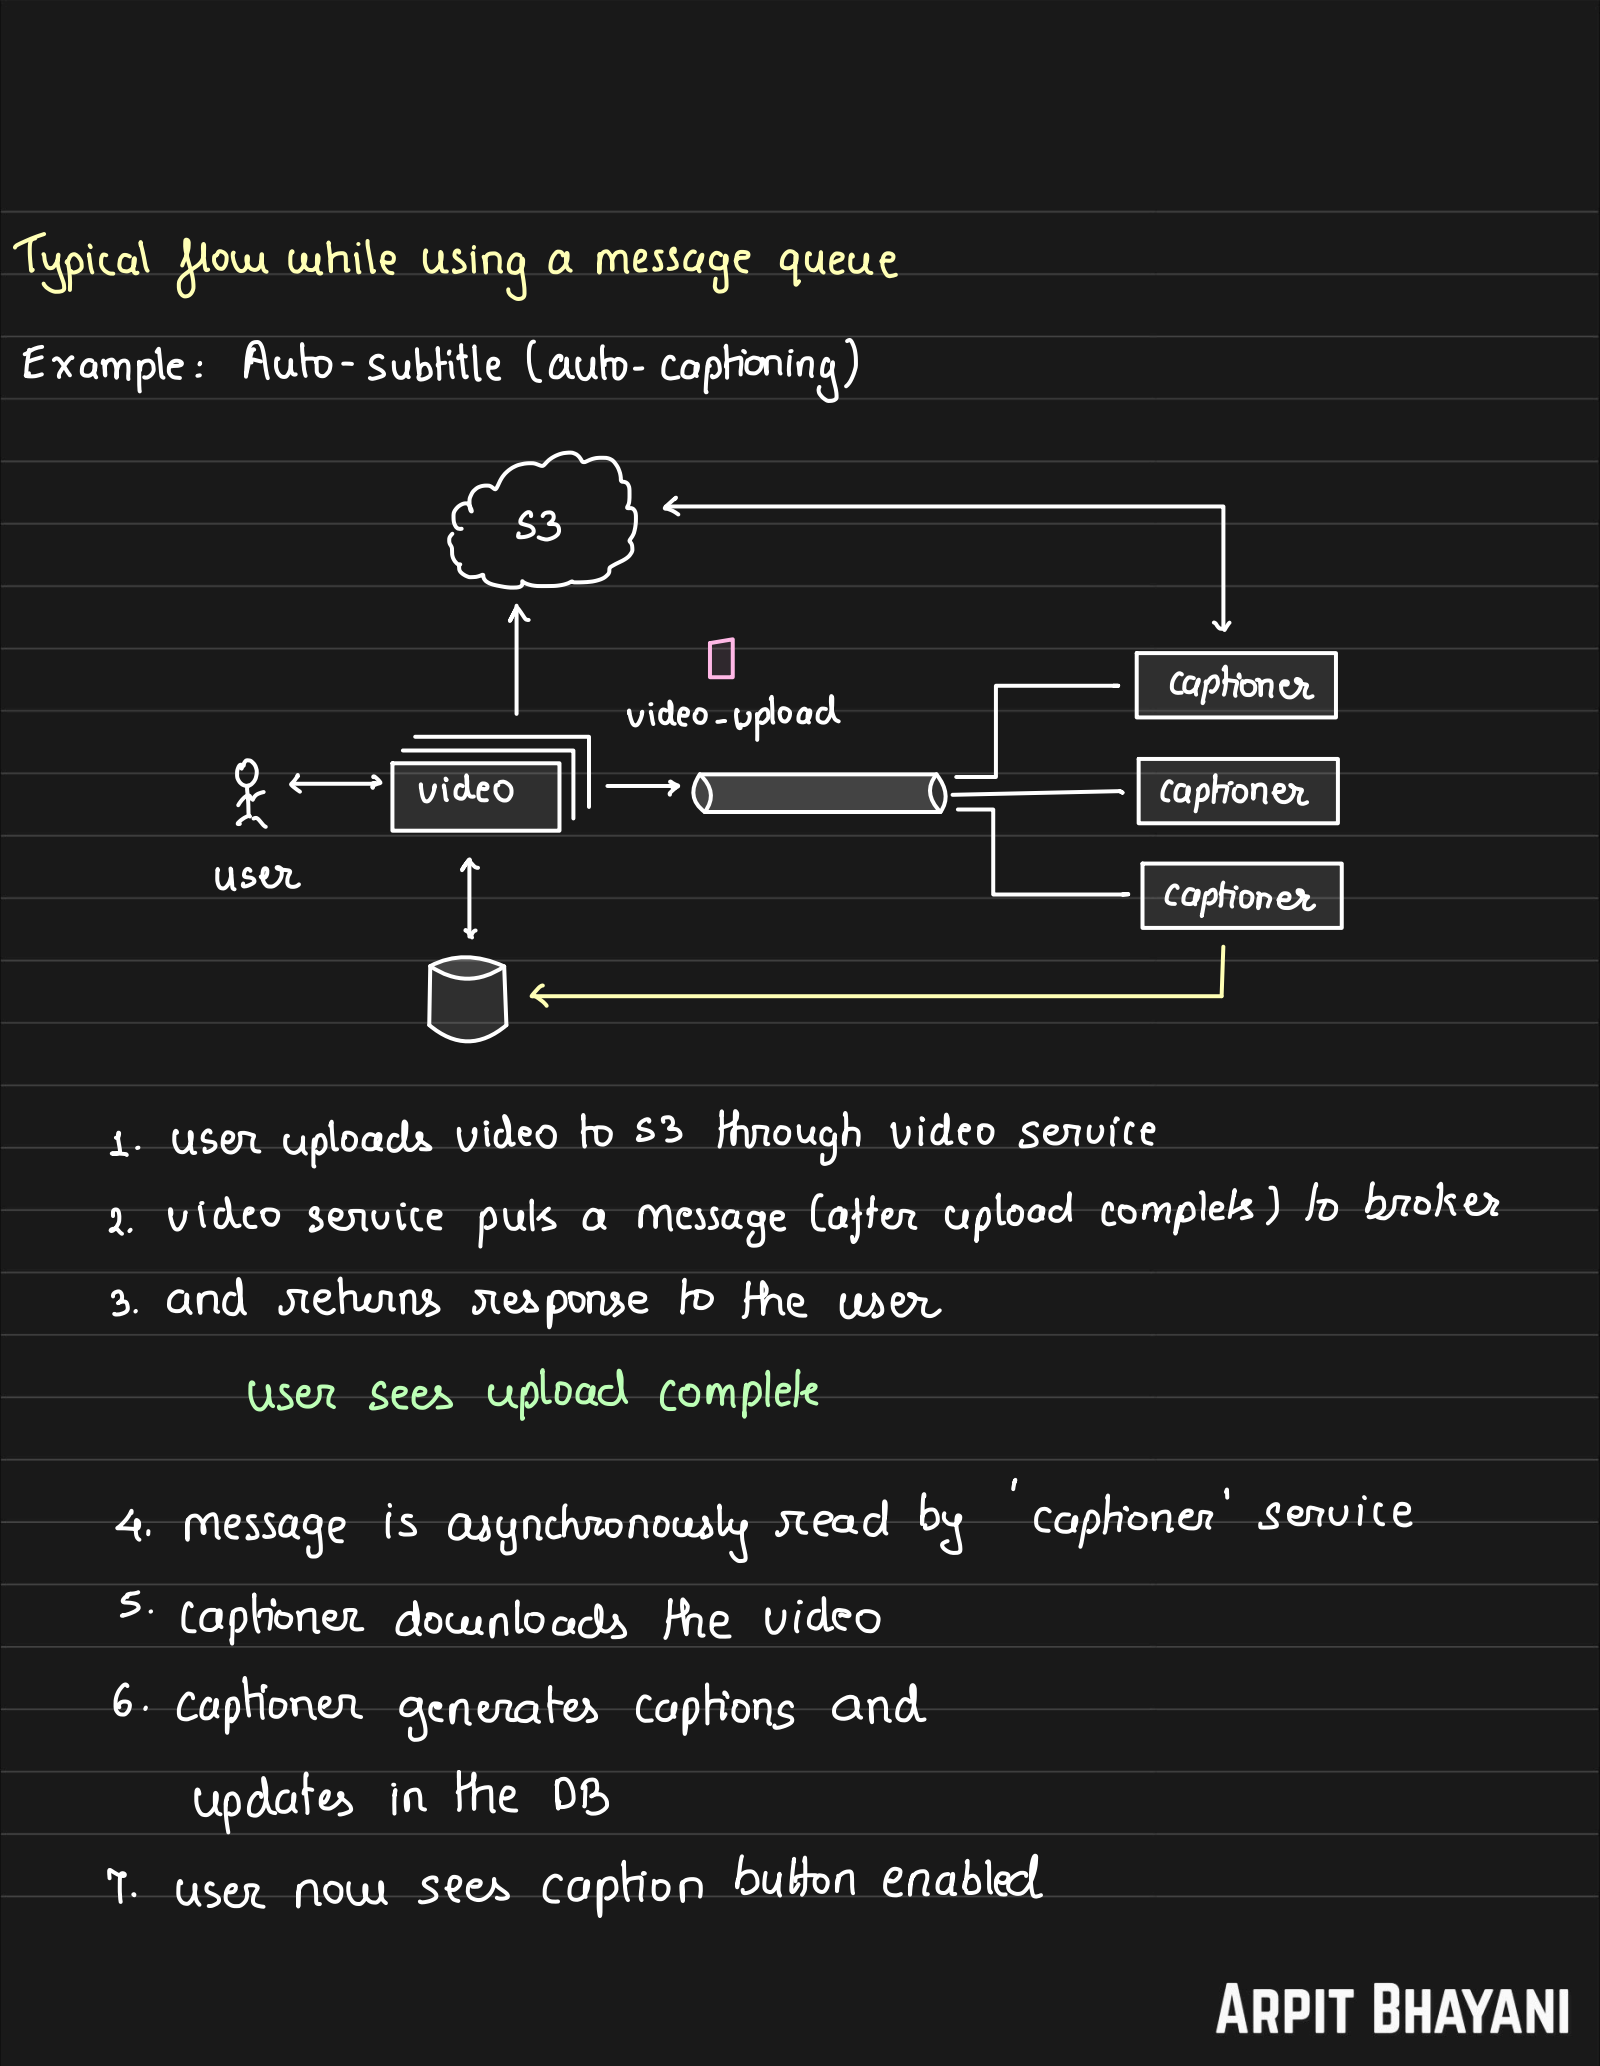 Typical flow while using a message queue
Example: Auto-subtitle (auto-captioning)
S3
captioner
video-upload
video
captioner
user
captioner
1. user uploads video to S3 through video service
2. video service puts a message (after upload completes) to broker
3. and returns response to the user
user sees upload complete
4. message is asynchronously read by 'captioner' service
5. captioner downloads the video
6. captioner generates captions and
updates in the DB
7. user now sees caption button enabled
ARPIT BHAYANI